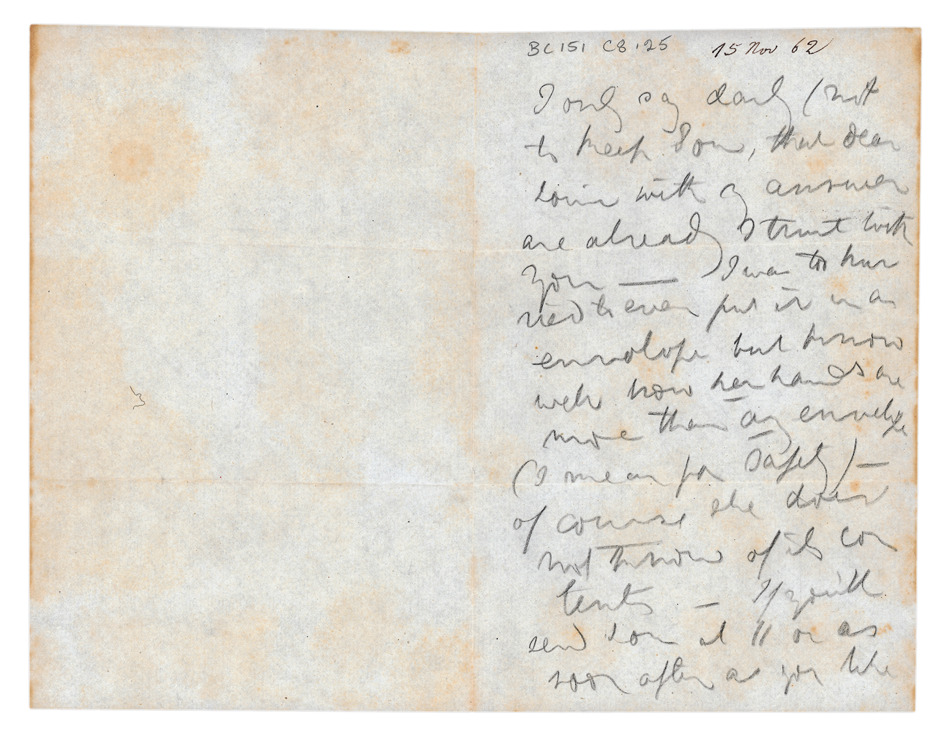 BC 151 C8 :25 15 Nov 62
I only say darly (not
to keep Tom, that dear
with my answer
are already I trust with
you — I was to hur
ried to even put it in an
envelope but know
well how her hands are
more than any envelope
(I mean for safety) —
of course she does
not know of its con
tents — If you'll
send Tom at 11 or as
soon after as you like